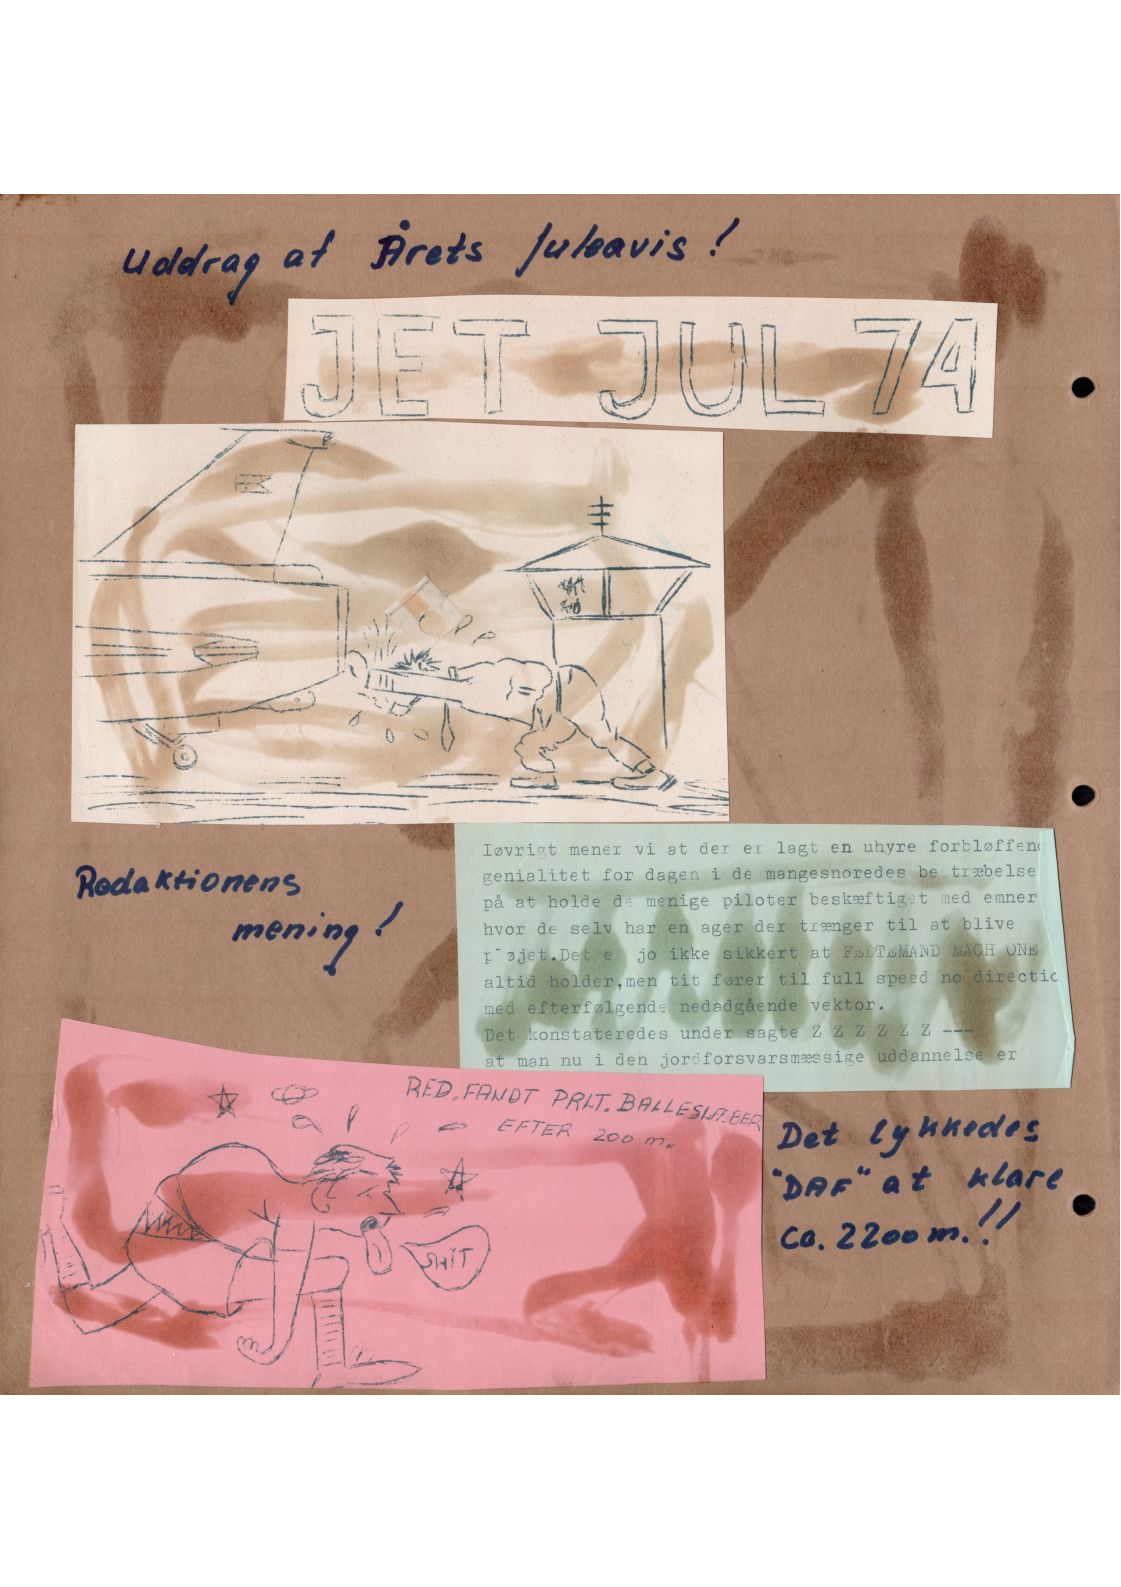 Uddrag af Årets Juleavis!
JET JUL 74
Redaktionens
mening!
Iøvrigt mener vi at der er lagt en uhyre forbløffend
genialitet for dagen i de mangesnoredes bestræbelse
på at holde de menige piloter beskæftiget med emner
hvor de selv har en ager der trænger til at blive
pløjet.Det e jo ikke sikkert at FEDTEMAND MACH ONE
altid holder,men tit fører til full speed no directio
med efterfølgende nedadgående vektor.
Det konstateredes under sagte Z Z Z Z Z Z ---
at man nu i den jordforsvarsmæssige uddannelse er
RED. FANDT PRLT.
EFTER 200 m.
SHIT
Det lykkedes
"DAF" at klare
ca. 2200 m.!!